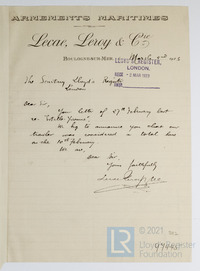 ARMEMENTS MARITIMES
Lecae, Leroy & Cie
BOULOGNE-SUR-MER, March 2nd
LLOYD'S REGISTER,
LONDON.
The Secretary Lloyd's Register
London
Dear Sir,
Your letter of 27th February last
re "Estelle Yvonne"
We beg to announce you that
trawler was considered a total loss
on the 10th February
We are,
Dear Sir
Yours faithfully
© 2021
Lloyd's Register
Foundation